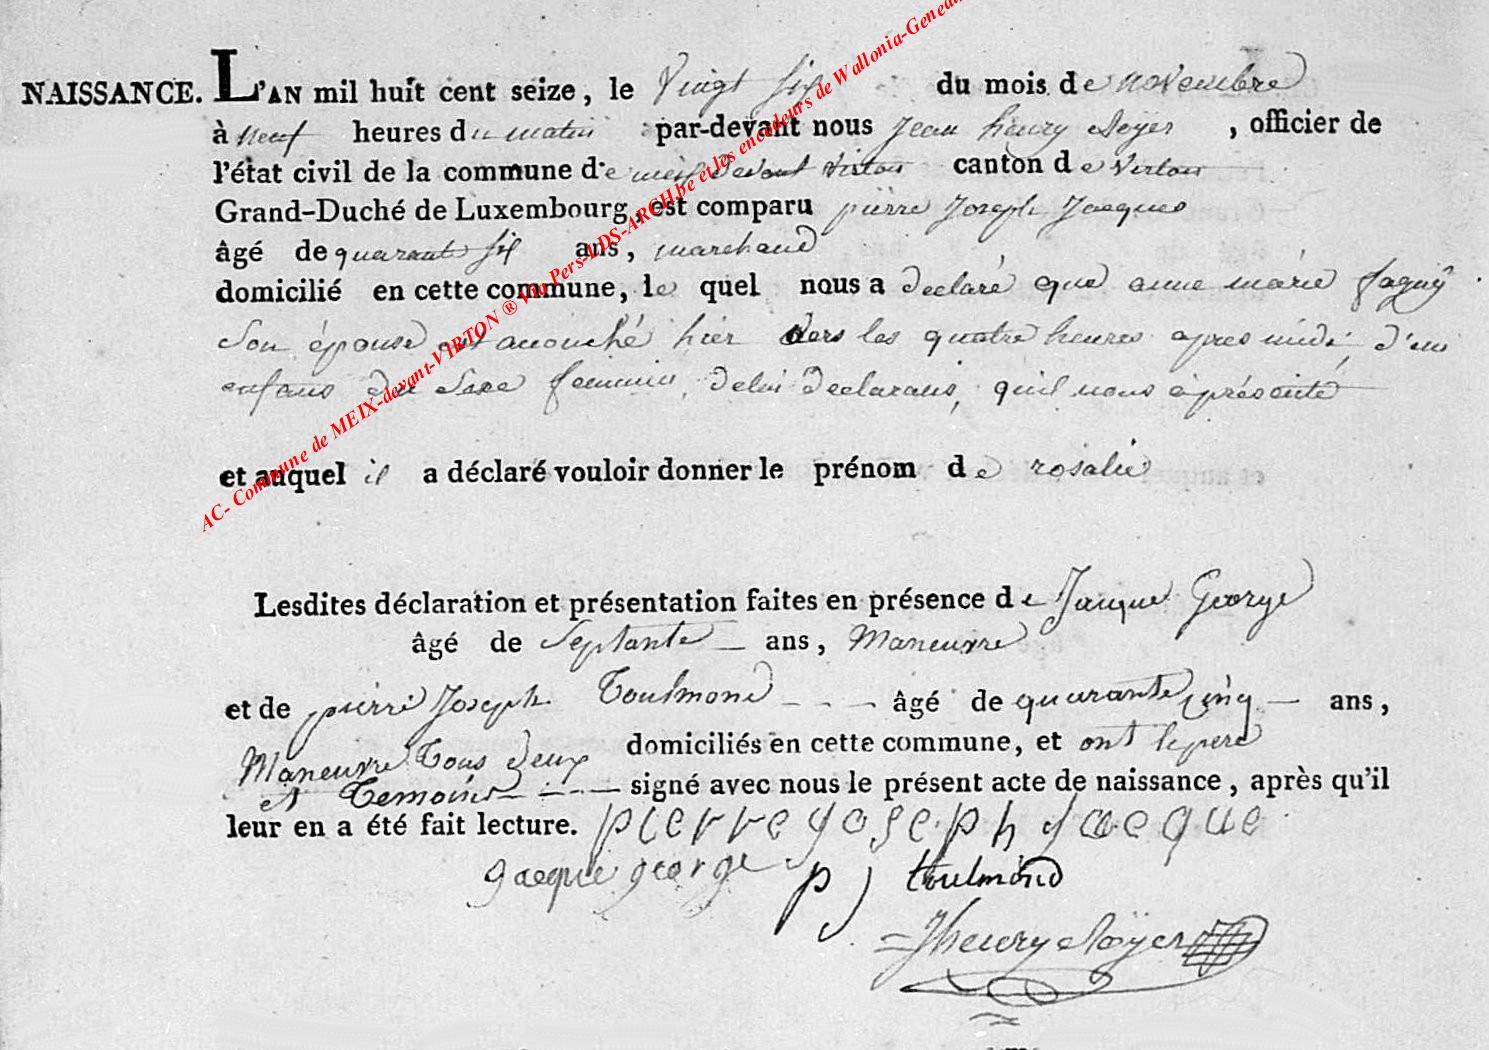 NAISSANCE. L'AN mil huit cent seize, le Vingt six du mois de novembre
à neuf heures du matin par-devant nous Jean henry , officier de
l'état civil de la commune de meix devant virton canton de virton
Grand-Duché de Luxembourg, est comparu pierre Joseph Jacques
âgé de quarant six ans, marchand
domicilié en cette commune, le quel nous a declaré que anne marie fagny
son épouse est accouché hier vers les quatre heures apres midi, d'un
enfans du sexe feminin, delui declarans, quil nous à présenté
et auquel il a déclaré vouloir donner le prénom de rosalie
Lesdites déclaration et présentation faites en présence de Jacque George
âgé de Septante ans, Maneuvre
et de pierre Joseph Toulmond âgé de quarante cinq ans,
Maneuvre Tous deux domiciliés en cette commune, et ont le pere
et Temoins signé avec nous le présent acte de naissance, après qu'il
leur en a été fait lecture. pierre yoseph jacque
gacque george p j toulmond
Jhenry
AC- Commune de MEIX-devant-VIRTON ® Via Pers-LDS-ARCH.be et les encodeurs de Wallonia-Genea